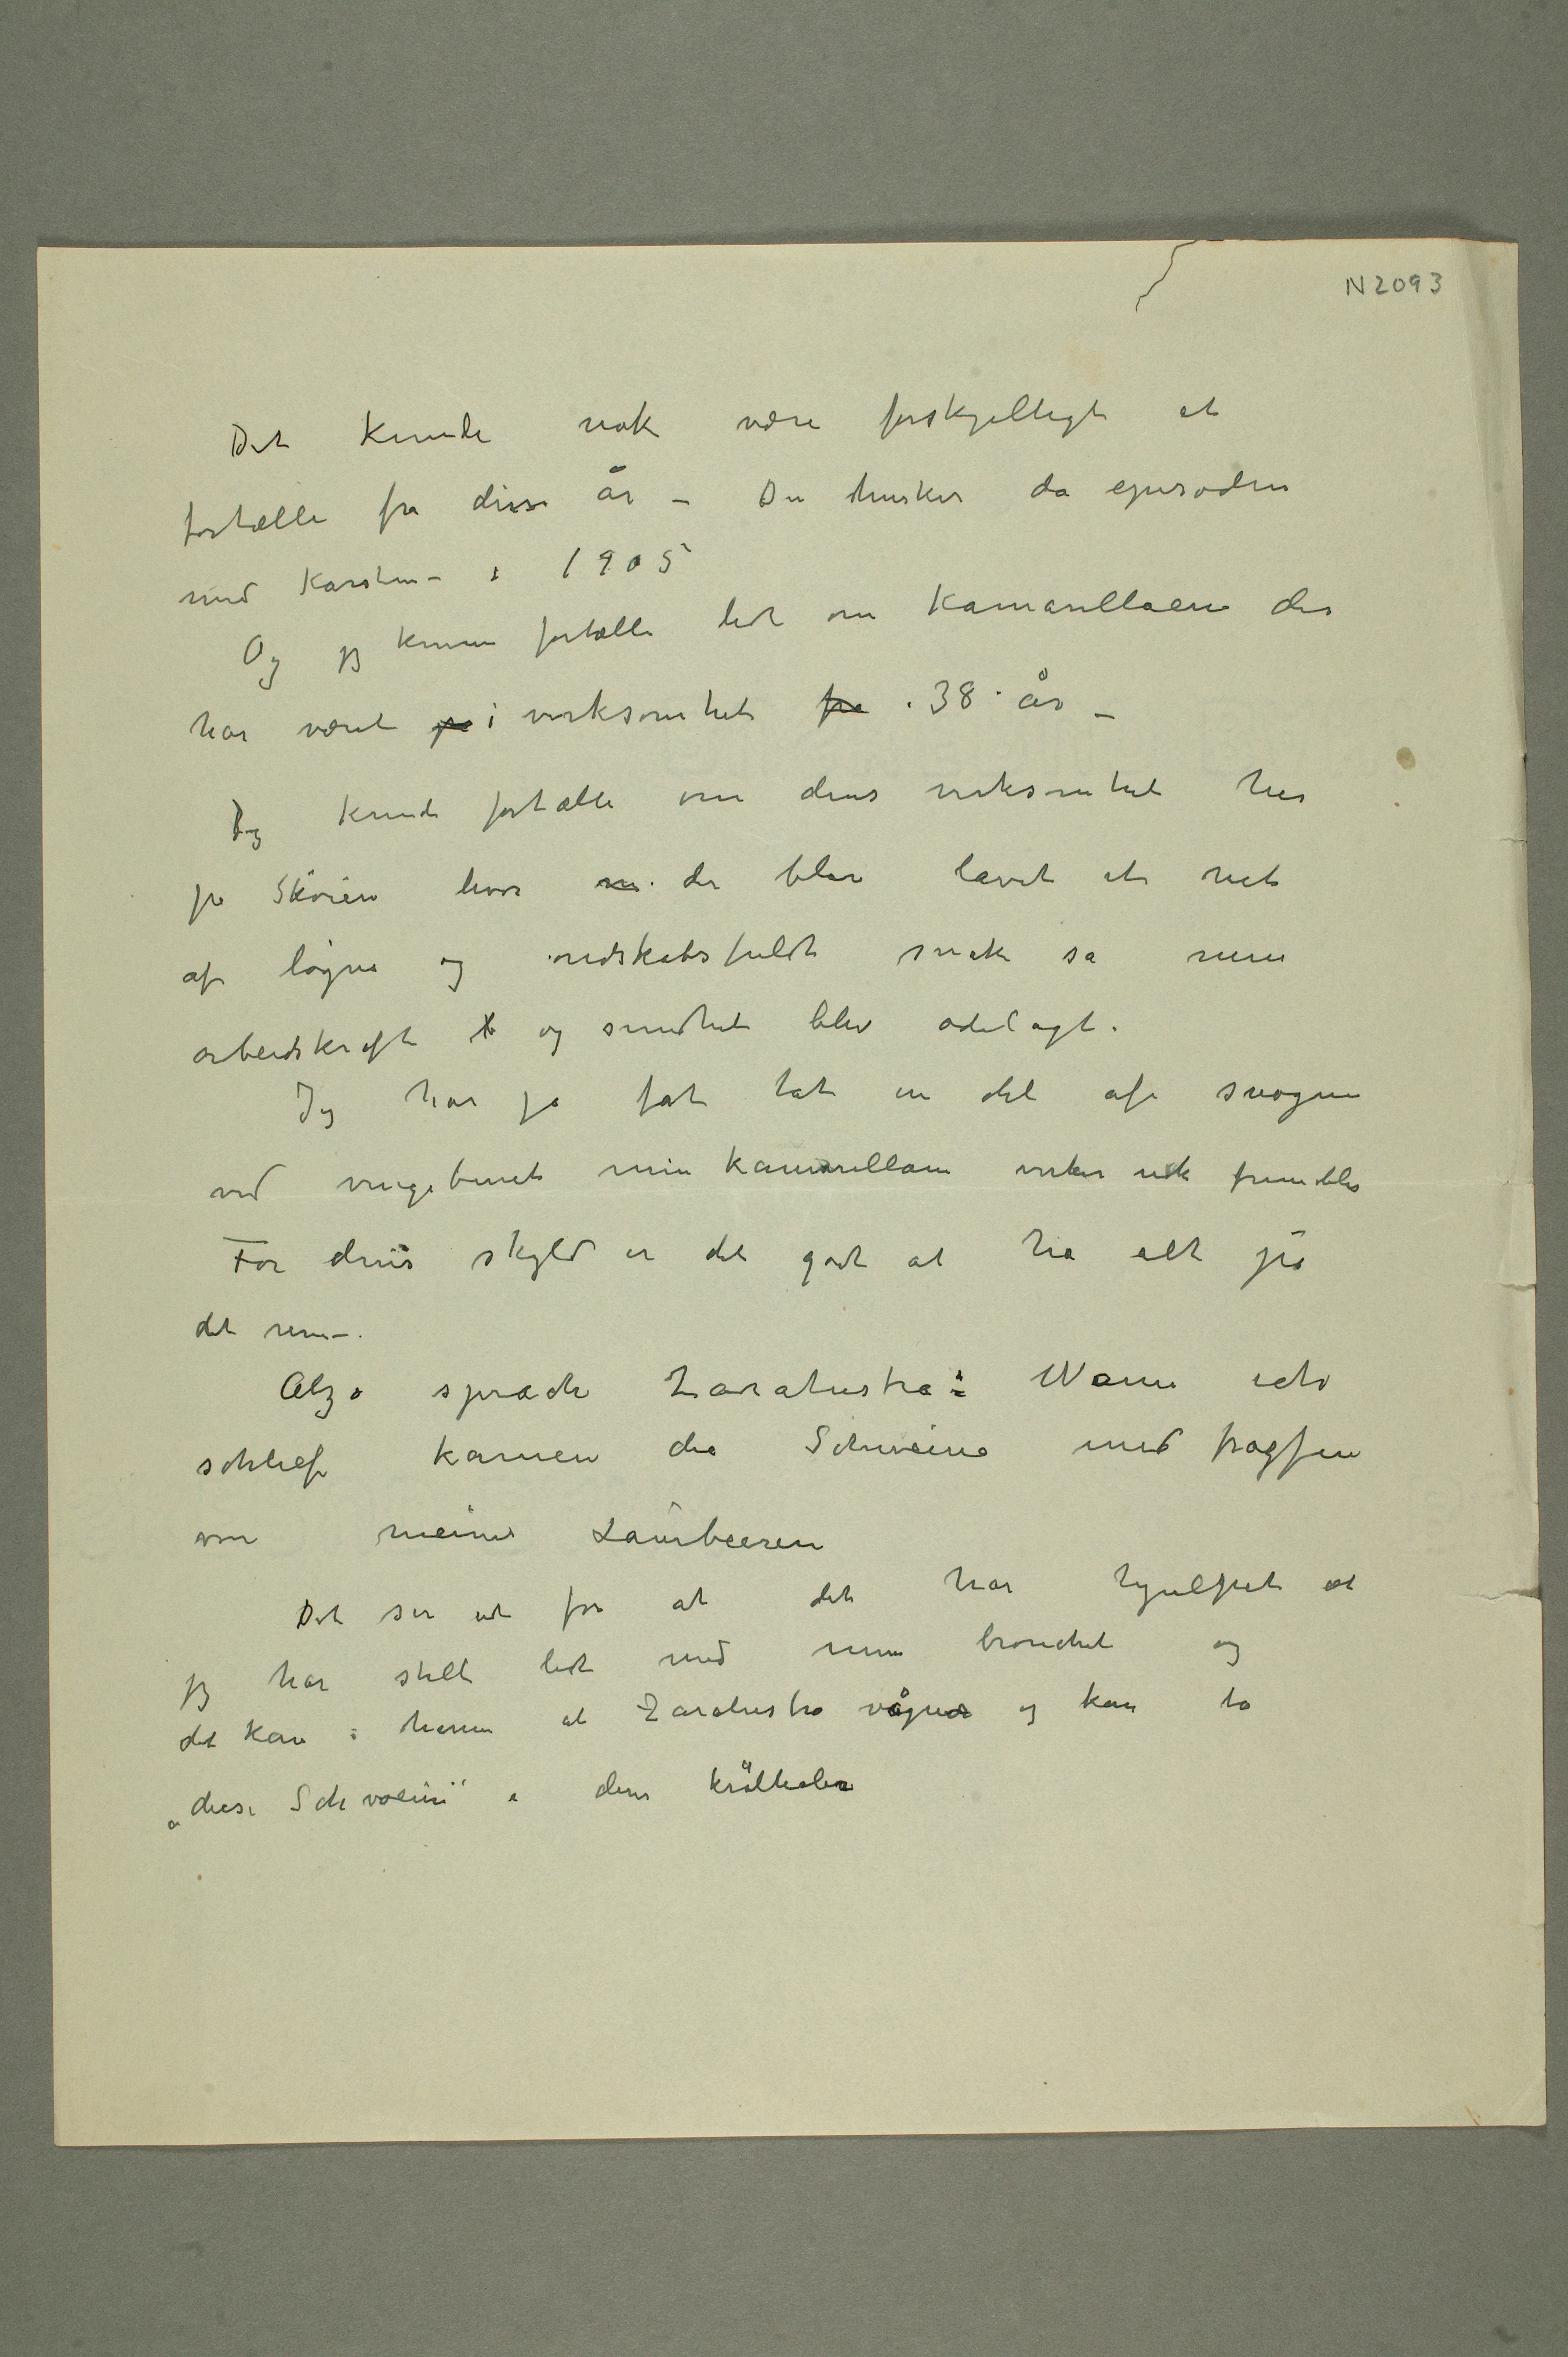 N 2093
Det kunde nok være forskjelligt at
fortælle fra disse år – Du husker da episoden
med Karsten – i 1905
Og jeg kunne fortælle lidt om Kamarillaen der
har været på i virksomhet fra i 38 år –
Jeg kunde fortælle om dens virksomhet her
på Skøien hvor der blev lavet et net
af løgne og ondskabsfuldt snak så min
arbeidskraft og sundhet blev ødelagt.
Jeg har jo fåt tat en del af svogne
ved vingebenet min kamarillaen virker nok fremdeles
For dens skyld er det godt at ha alt på
det rene –.
Alzo sprach Zaratustra: Wann ich
schlief kamen die Schweine und fragsen
von meine Laurbeeren
Det ser ut for at det har hjulpet at
jeg har stelt lidt med min bronchit og
det kan hænne at Zaratustra vågner og kan ta
„diese Schweine" i deres krølhaler